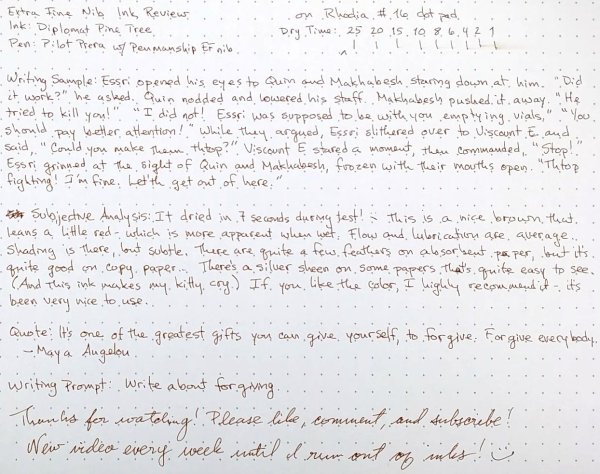 Extra Fine Nib Ink Review on Rhodia #16 dot pad
Ink: Diplomat Pine Tree Dry Time: 25 20 15 10 8 6 4 2 1
Pen: Pilot Prera w/ Penmanship EF nib
Writing Sample: Essri opened his eyes to Quin and Makhabesh staring down at him. "Did
it work?" he asked. Quin nodded and lowered his staff. Makhabesh pushed it away. "He
tried to kill you!" "I did not! Essri was supposed to be with you emptying vials," "You
should pay better attention!" While they argued, Essri slithered over to Viscount E and
said, "Could you make them thtop?" Viscount E stared a moment, then commanded, "Stop!"
Essri grinned at the sight of Quin and Makhabesh, frozen with their mouths open. "Thtop
fighting! I'm fine. Let'th get out of here."
Subjective Analysis: It dried in 7 seconds during test! ~ This is a nice brown that
leans a little red - which is more apparent when wet. Flow and lubrication are average.
Shading is there, but subtle. There are quite a few feathers on absorbent paper, but it's
quite good on copy paper. There's a silver sheen on some papers that's quite easy to see.
(And this ink makes my kitty cry.) If you like the color, I highly recommend it - it's
been very nice to use.
Quote: It's one of the greatest gifts you can give yourself, to forgive. Forgive everybody.
- Maya Angelou
Writing Prompt: Write about forgiving.
Thanks for watching! Please like, comment, and subscribe!
New video every week until I run out of inks! :)